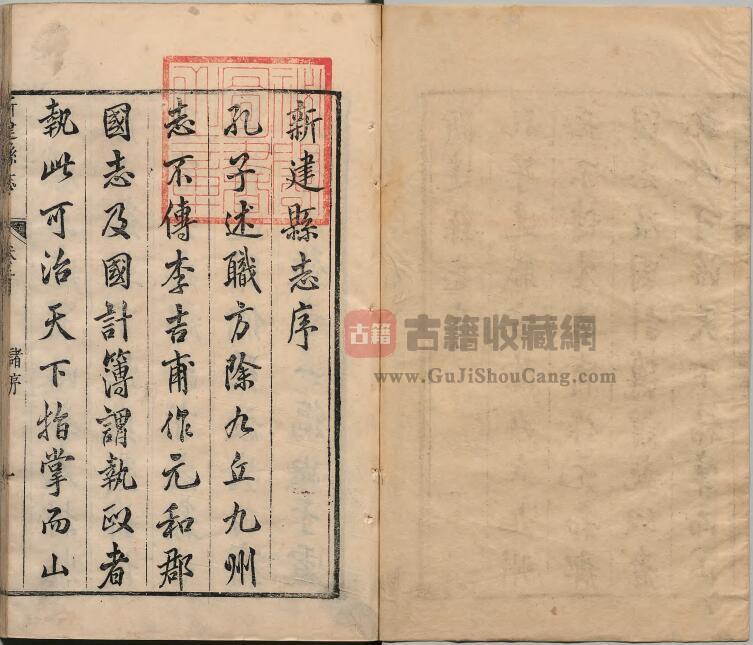 新建縣志序
孔子述職方除九丘九州
志不傳李吉甫作元和郡
國志及國計簿謂執政者
執此可治天下指掌而山
新建縣志
諸序
一
古籍 古籍收藏網
www.GuJiShouCang.com